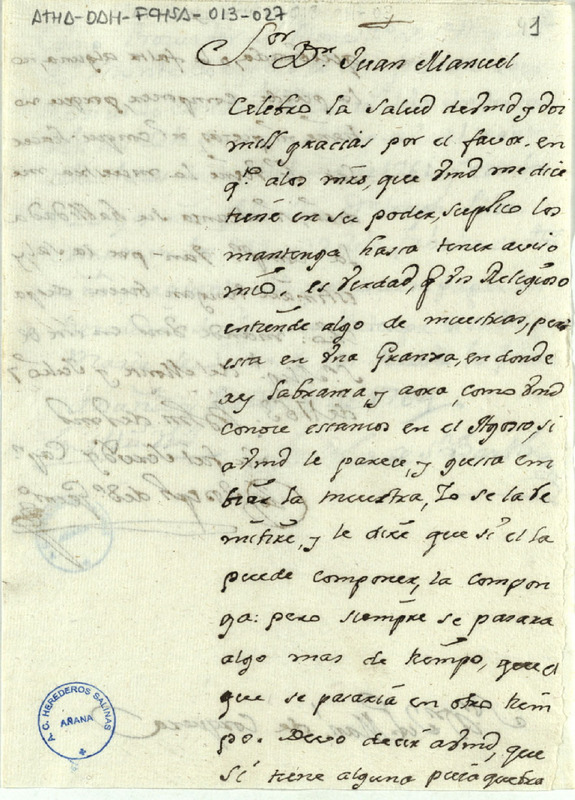 ATHA-DAH-FAHSA-013-027
1
Sor Dn. Juan Manuel
Celebro la Salud de vmd y doi
mill gracias por el favor. en
qto. a los mrs, que vmd me dice
tiene en su poder, suplico los
mantenga hasta tener aviso
mio. es verdad, q un Religioso
entiende algo de muestras, pero
esta en una Granxa, en donde
ay Labranza, y aora, como vmd
conoce estamos en el Agosto, si
a vmd le parece, y gusta em
biar la muestra, Io se la re
mitire, y le dire que si el la
puede componer, la compon
ga: pero siempre se pasara
algo mas de tiempo, que el
que se pasaria en otro tiem
po. Devo decir a vmd, que
si tiene alguna pieza quebra
A. C. HEREDEROS SALINAS
ARANA